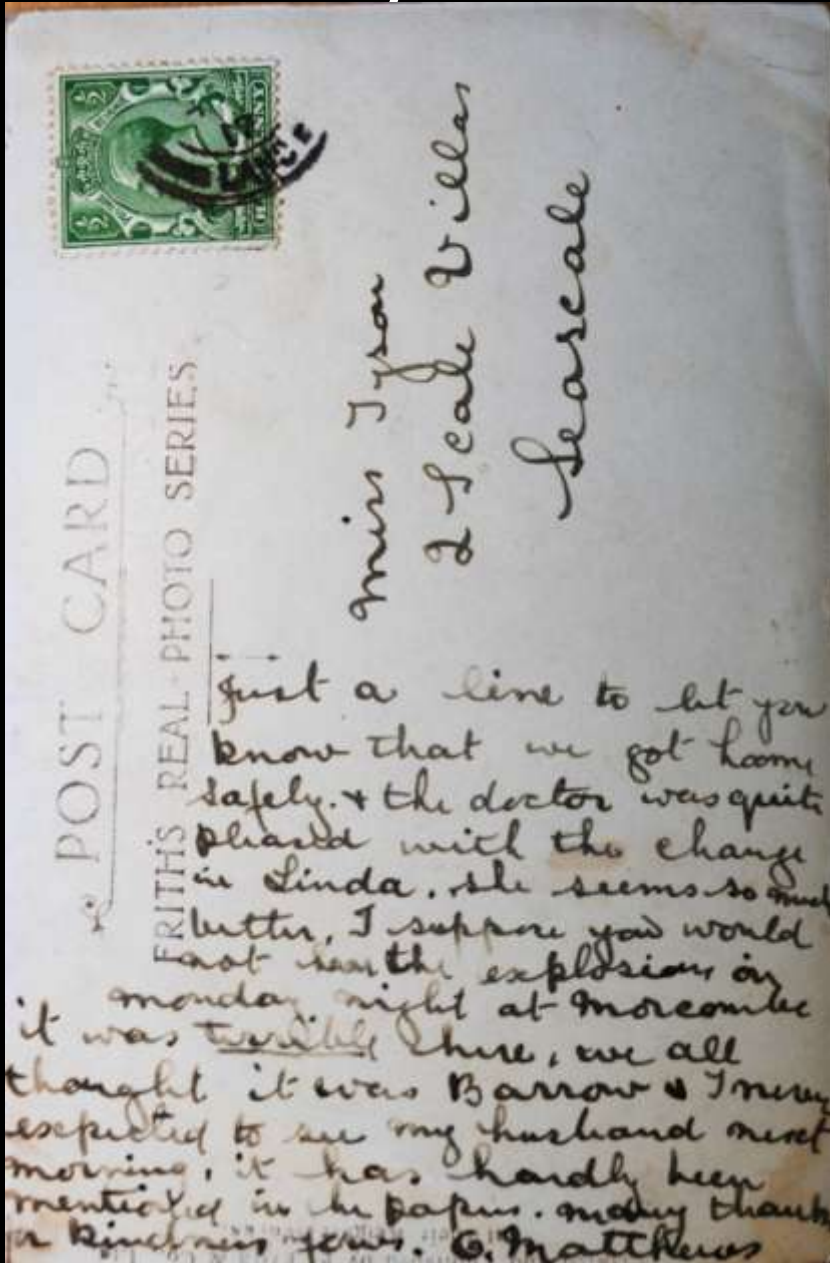 POST CARD
FRITH'S REAL PHOTO SERIES
Miss Tyson
2 Scale Villas
Seascale
Just a line to let you
know that we got home
safely. & the doctor was quite
pleased with the change
in Linda. She seems so much
better, I suppose you would
not the explosion on
monday night at Morcombe
it was terrible here, we all
thought it was Barrow & I never
expected to see my husband next
morning. it has hardly been
mentioned in the papers. many thanks
for kindness yours. C. Matthews